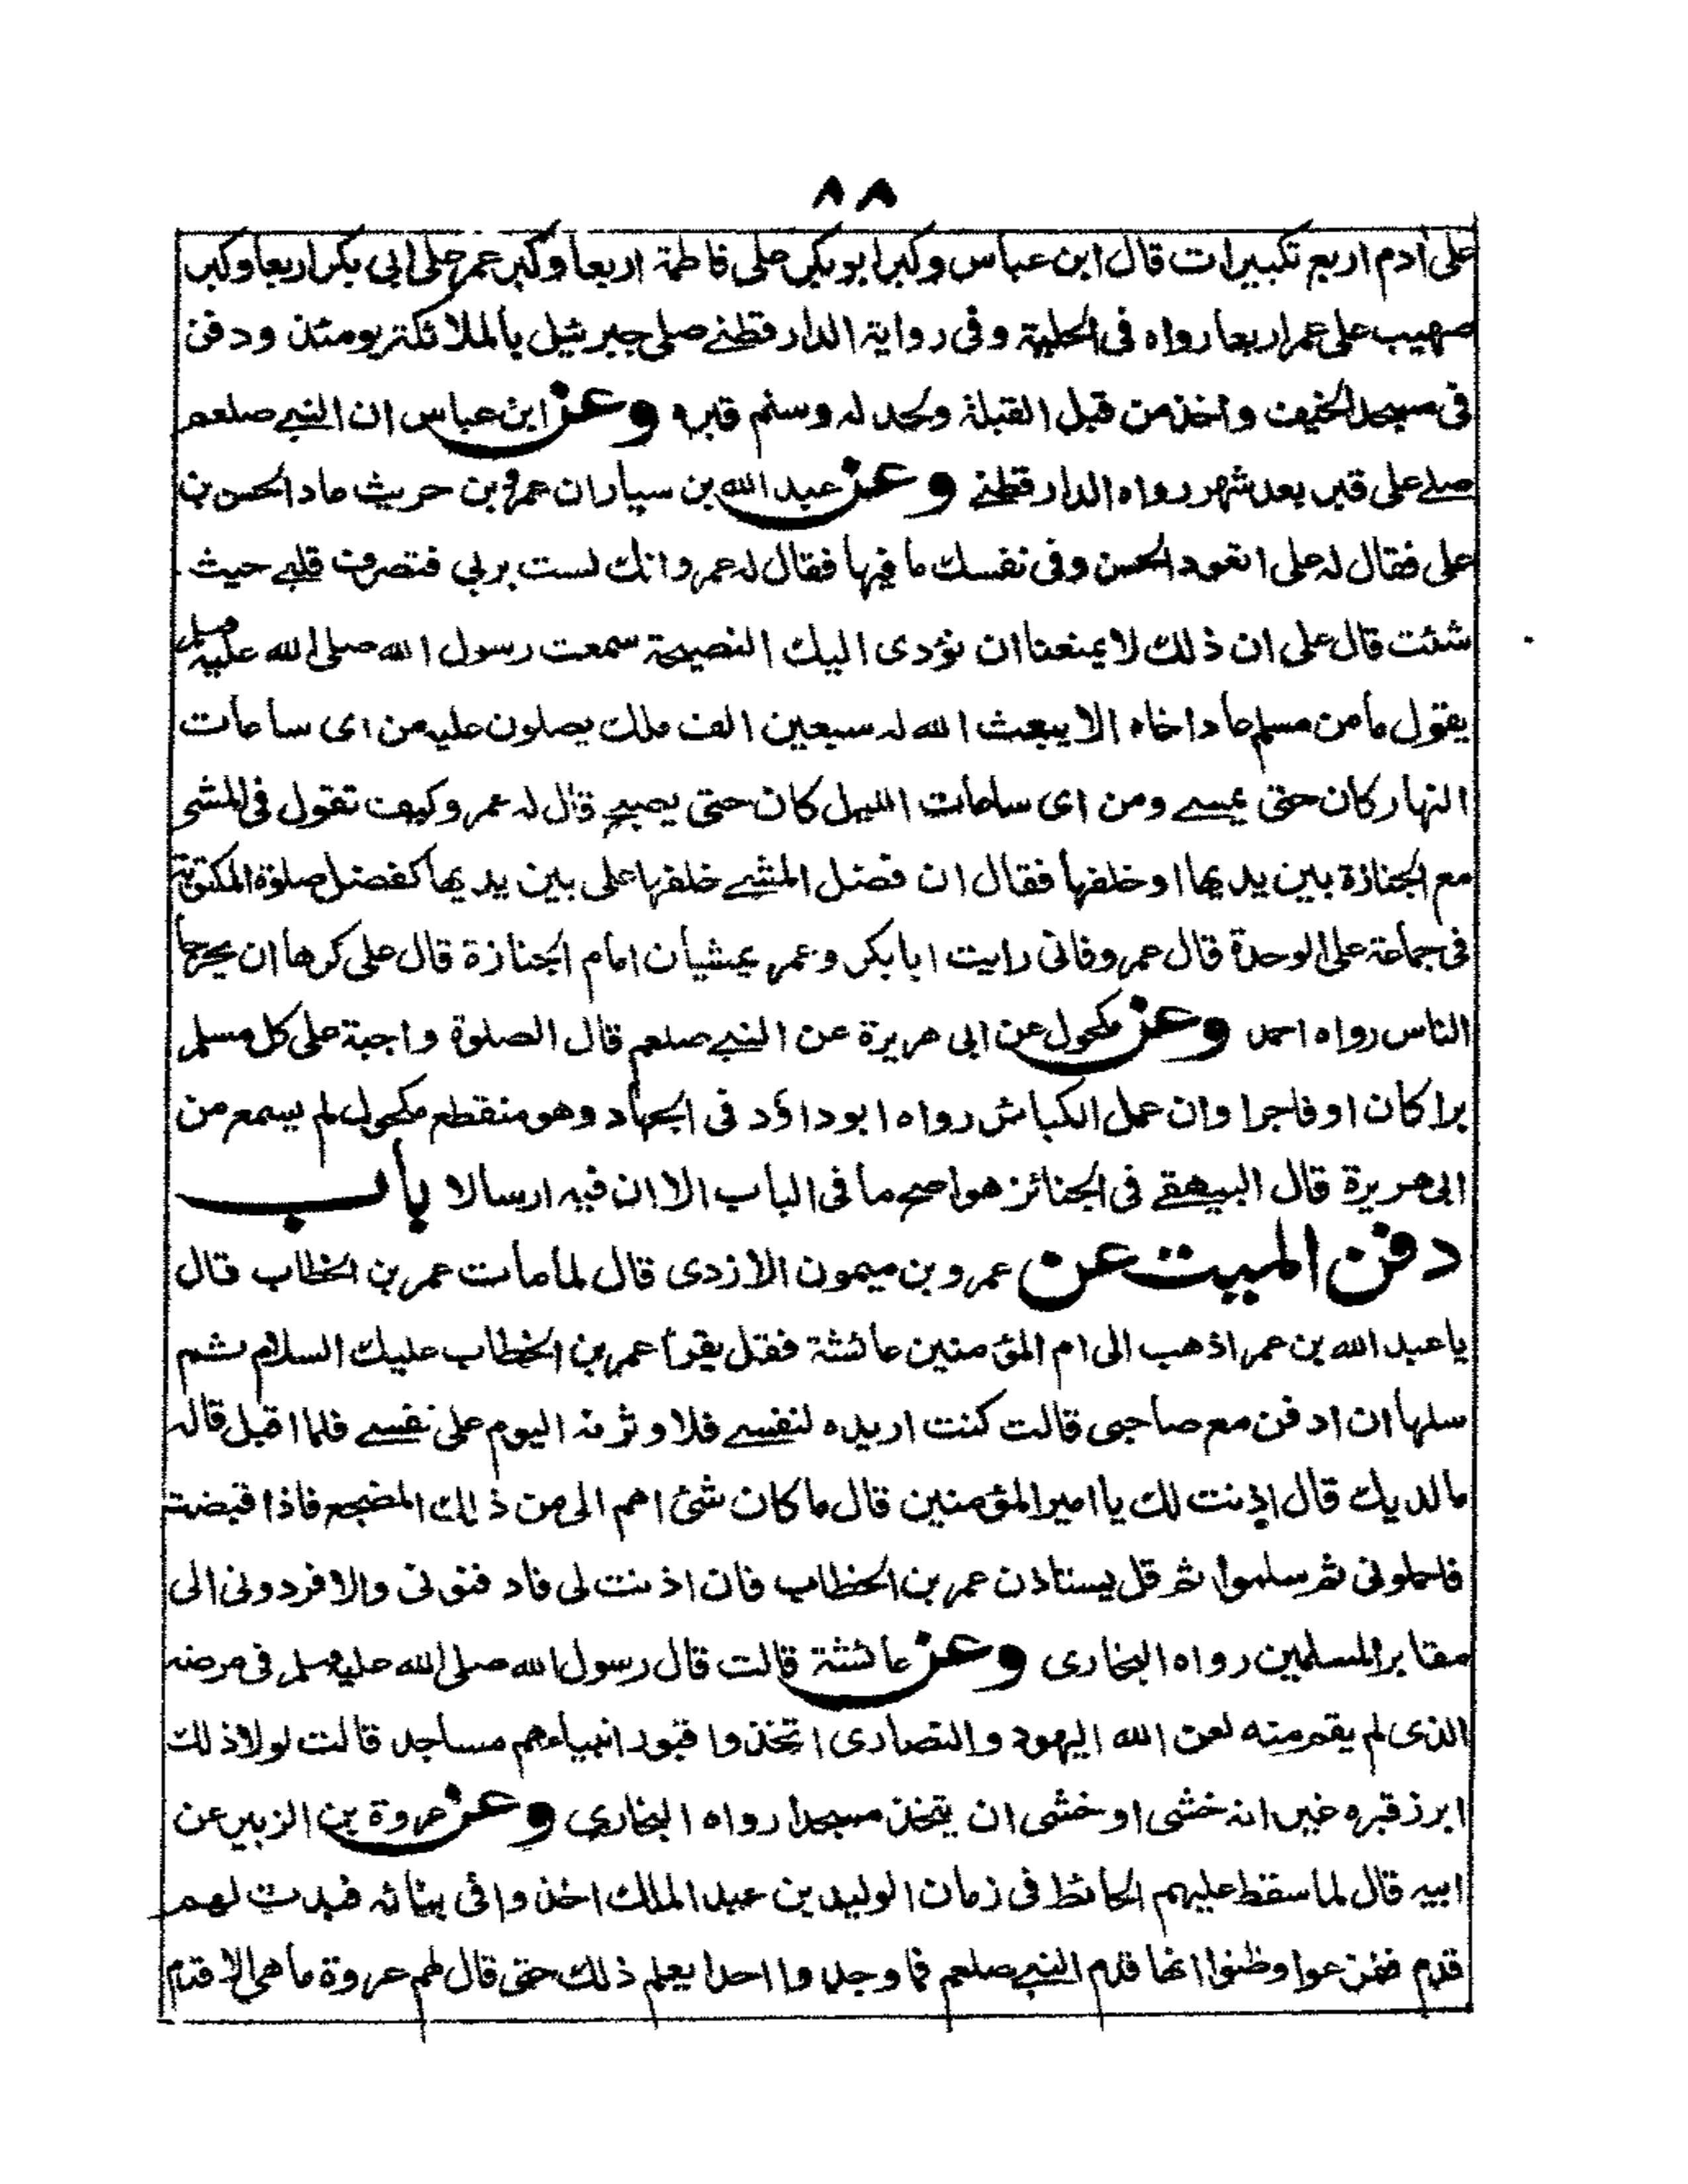 ٨٨
على آدم اربع تكبيرات قال ابن عباس وكبر ابو بكر على فاطمة اربعا وكبر عمر على ابى بكر اربعا وكبر
صهيب على عمر اربعا رواه فى الحلية وفى رواية الدارقطنے صلى جبرئيل بالملائكة يومئذ ودفن
فى مسجد الخيف واخذ من قبل القبلة ولحد له وسنم قبره وعن ابن عباس ان النبے صلعم
صلے على قبر بعد شهر رواه الدارقطنے وعن عبد الله بن سيار ان عمرو بن حريث عاد الحسن بن
على فقال له على اتعود الحسن وفى نفسك ما فيها فقال له عمرو انك لست بربي فتصرف قلبے حيث
شئت قال على ان ذلك لا يمنعنا ان نؤدى اليك النصيحة سمعت رسول الله صلى الله عليه وسلم
يقول ما من مسلم عاد اخاه الا يبعث الله له سبعين الف ملك يصلون عليه من اى ساعات
النهار كان حتى يمسے ومن اى ساعات الليل كان حتى يصبح قال له عمرو كيف تقول فى المشى
مع الجنازة بين يديها او خلفها فقال ان فضل المشے خلفها على بين يديها كفضل صلوة المكتوبة
فى جماعة على الوحدة قال عمرو فانى رايت ابا بكر وعمر يمشيان امام الجنازة قال على كرها ان يحرجا
الناس رواه احمد وعن مكحول عن ابى هريرة عن النبے صلعم قال الصلوة واجبة على كل مسلم
برا كان او فاجرا وان عمل الكبائر رواه ابو داؤد فى الجهاد وهو منقطع مكحول لم يسمع من
ابى هريرة قال البيهقے فى الجنائز هو اصح ما فى الباب الا ان فيه ارسالا باب
دفن الميت عن عمرو بن ميمون الازدى قال لما مات عمر بن الخطاب قال
يا عبد الله بن عمر اذهب الى ام المؤمنين عائشة فقل يقرأ عمر بن الخطاب عليك السلام ثم
سلها ان ادفن مع صاحبى قالت كنت اريده لنفسے فلاوثرنه اليوم على نفسے فلما اقبل قاله
ما لديك قال اذنت لك يا امير المؤمنين قال ما كان شئ اهم الى من ذلك المضجع فاذا قبضت
فاحملونى ثم سلموا ثم قل يستاذن عمر بن الخطاب فان اذنت لى فادفنونى والا فردونى الى
مقابر المسلمين رواه البخارى وعن عائشة قالت قال رسول الله صلى الله عليه وسلم فى مرضه
الذى لم يقم منه لعن الله اليهود والنصارى اتخذوا قبور انبياءهم مساجد قالت لولا ذلك
ابرز قبره غير انه خشى او خشى ان يتخذ مسجدا رواه البخارى وعن عروة بن الزبير عن
ابيه قال لما سقط عليهم الحائط فى زمان الوليد بن عبد الملك اخذوا فى بنائه فبدت لهم
قدم ففزعوا وظنوا انها قدم النبے صلعم فما وجدوا احدا يعلم ذلك حتى قال لهم عروة ما هى الا قدم